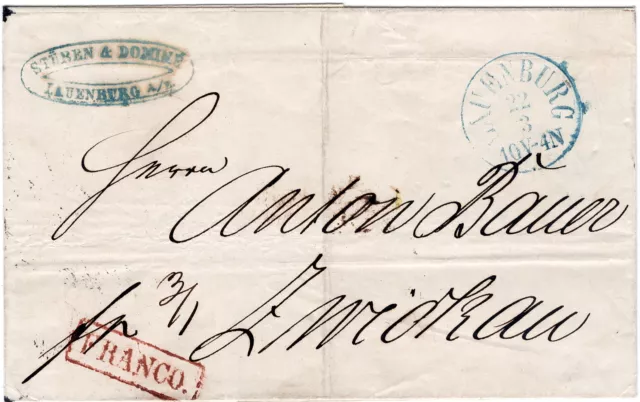 STÜBEN & DOMINÉ
LAUENBURG A/E
LAUENBURG
22
3
10V-4N
Herrn
Anton Bauer
fr 3/1 Zwickau
FRANCO.